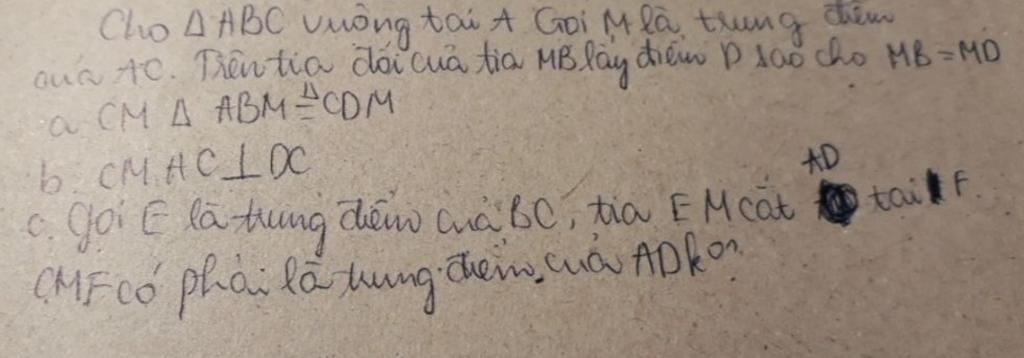 Cho Δ ABC vuông tại A Gọi M là trung điểm
của AC. Trên tia đối của tia MB lấy điểm D sao cho MB = MD
a. CM Δ ABM = Δ CDM
b. CM AC ⊥ DC
c. gọi E là trung điểm của BC, tia EM cắt AD tại F.
CMF có phải là trung điểm của AD ko?